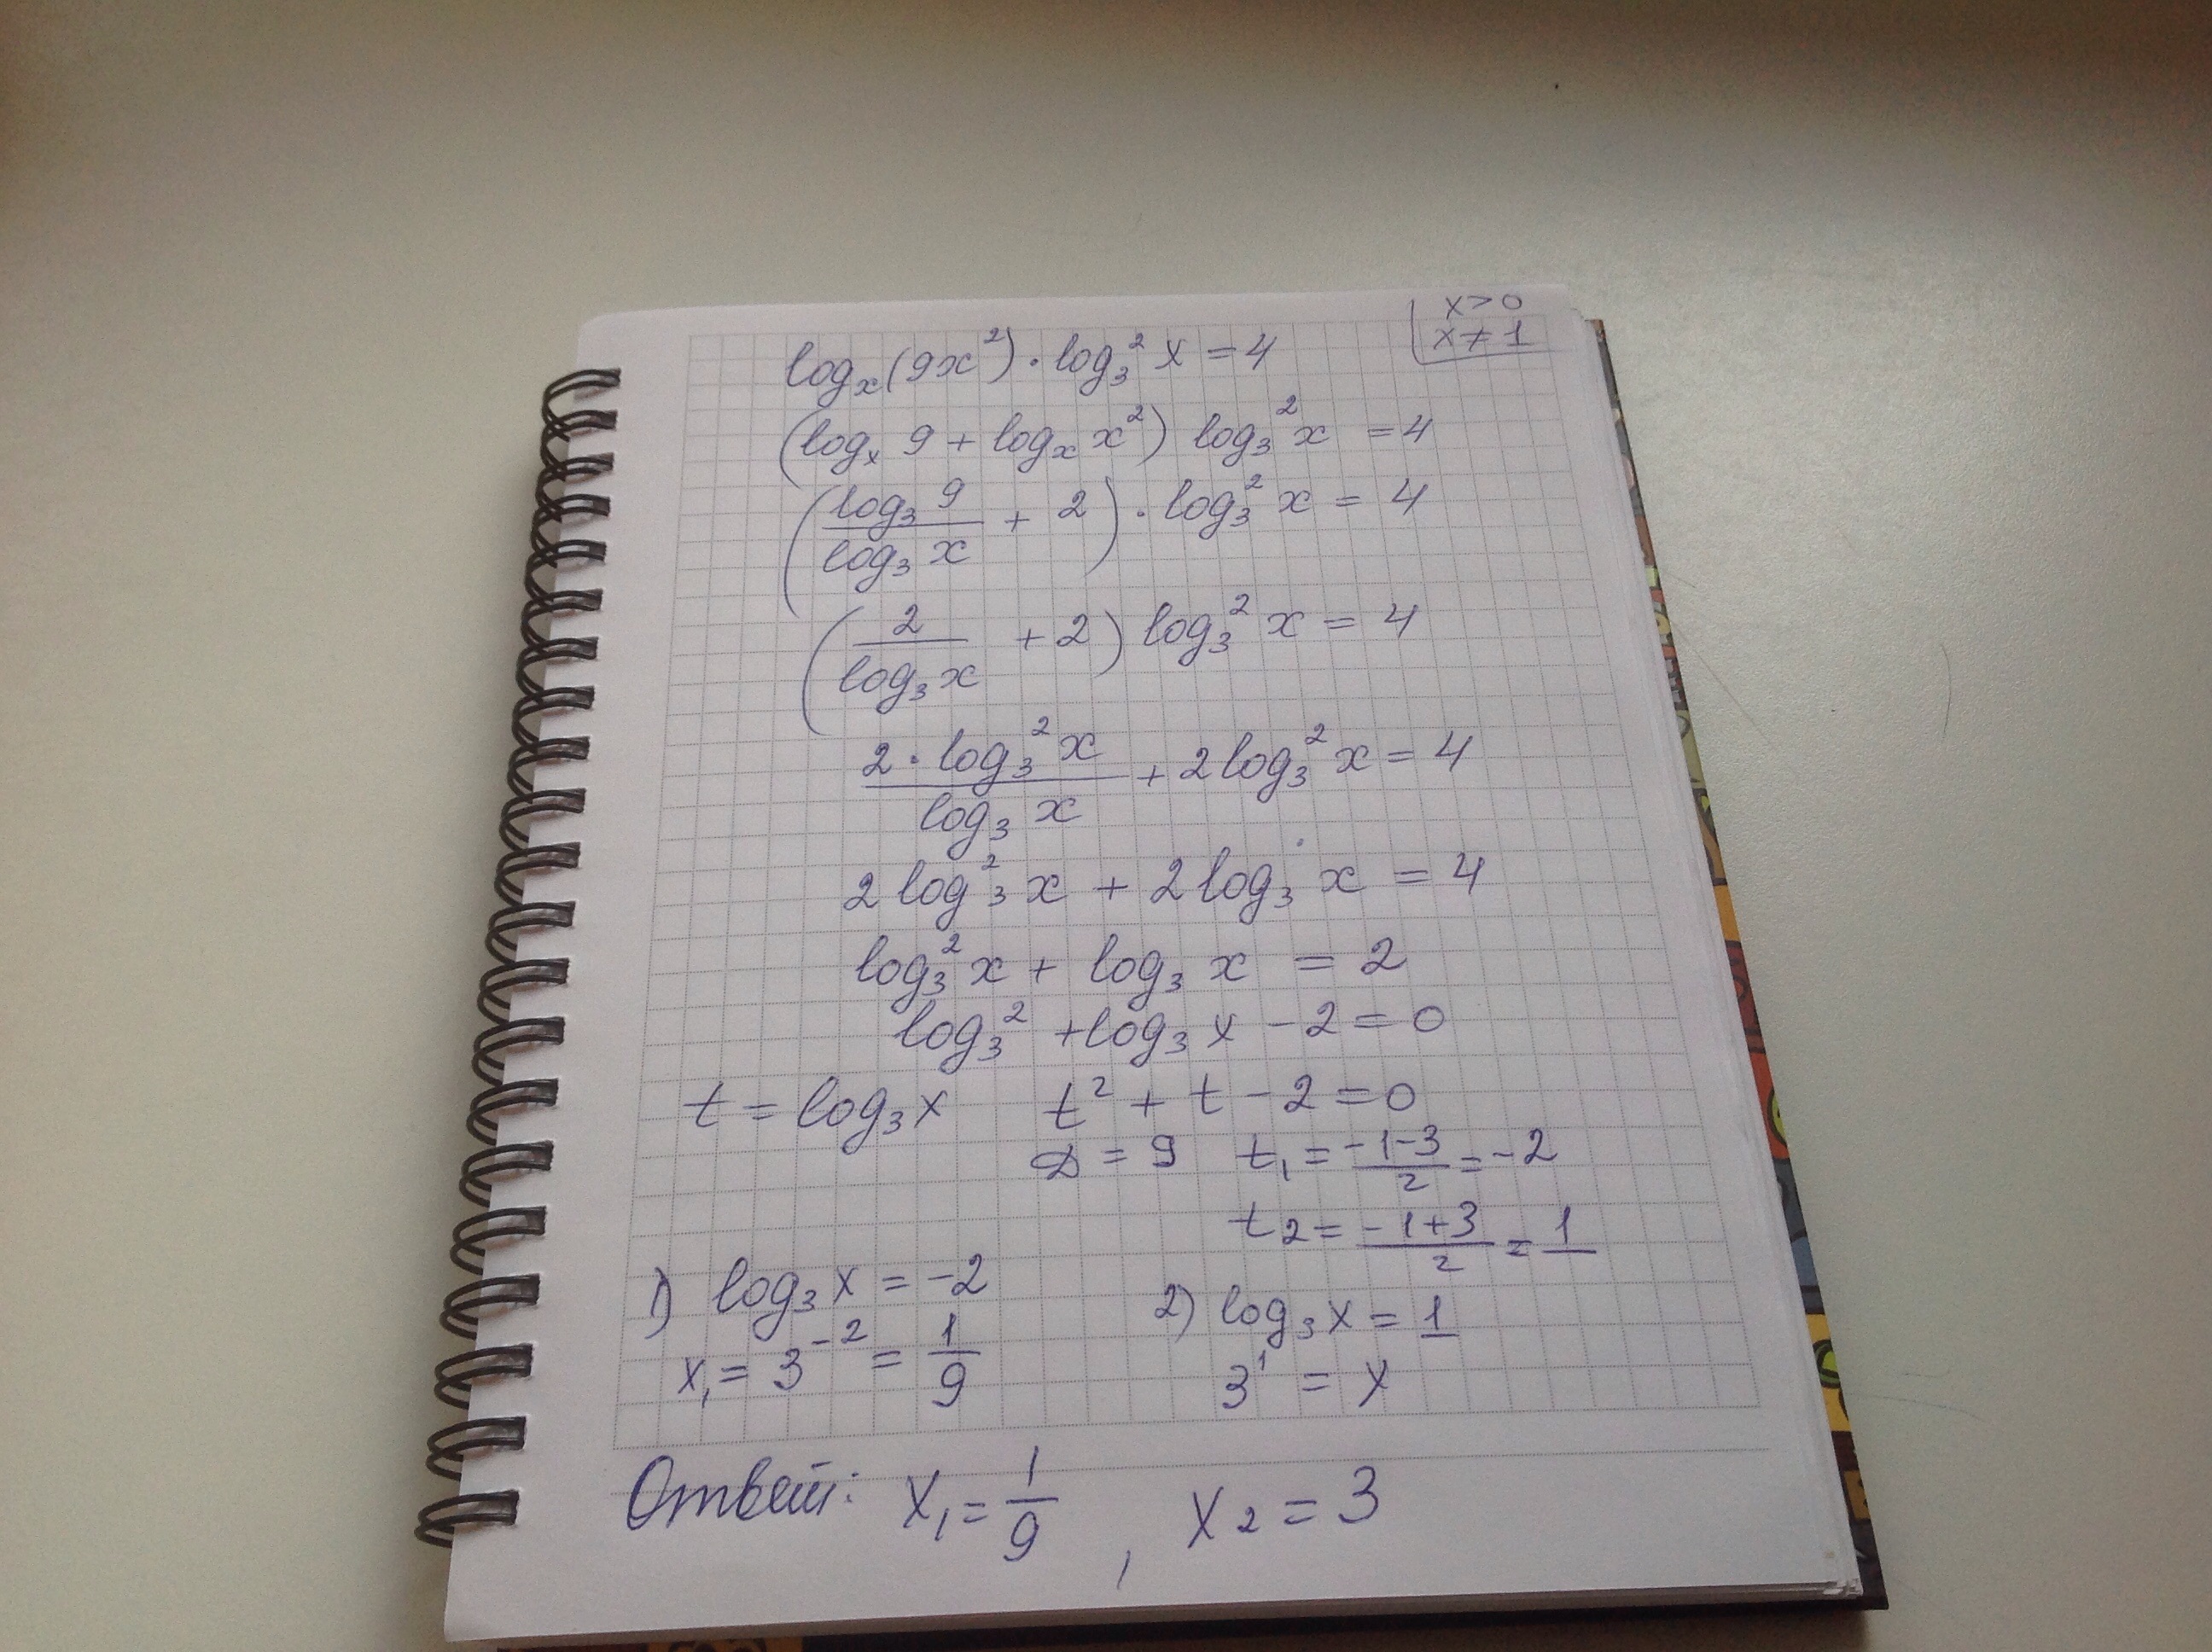 x>0
x≠1
logₓ(9x²)·log₃²x=4
(logₓ 9 + logₓ x²) log₃²x =4
(log₃ 9 / log₃ x + 2)·log₃² x = 4
(2 / log₃ x + 2) log₃² x = 4
2·log₃² x / log₃ x + 2 log₃² x = 4
2 log²₃ x + 2 log₃ x = 4
log₃² x + log₃ x = 2
log₃² + log₃ x - 2 = 0
t = log₃ x t² + t - 2 = 0
D = 9 t₁ = (-1-3)/2 = -2
t₂ = (-1+3)/2 = 1
1) log₃ x = -2 2) log₃ x = 1
x₁ = 3⁻² = 1/9 3¹ = x
Ответ: x₁ = 1/9 , x₂ = 3